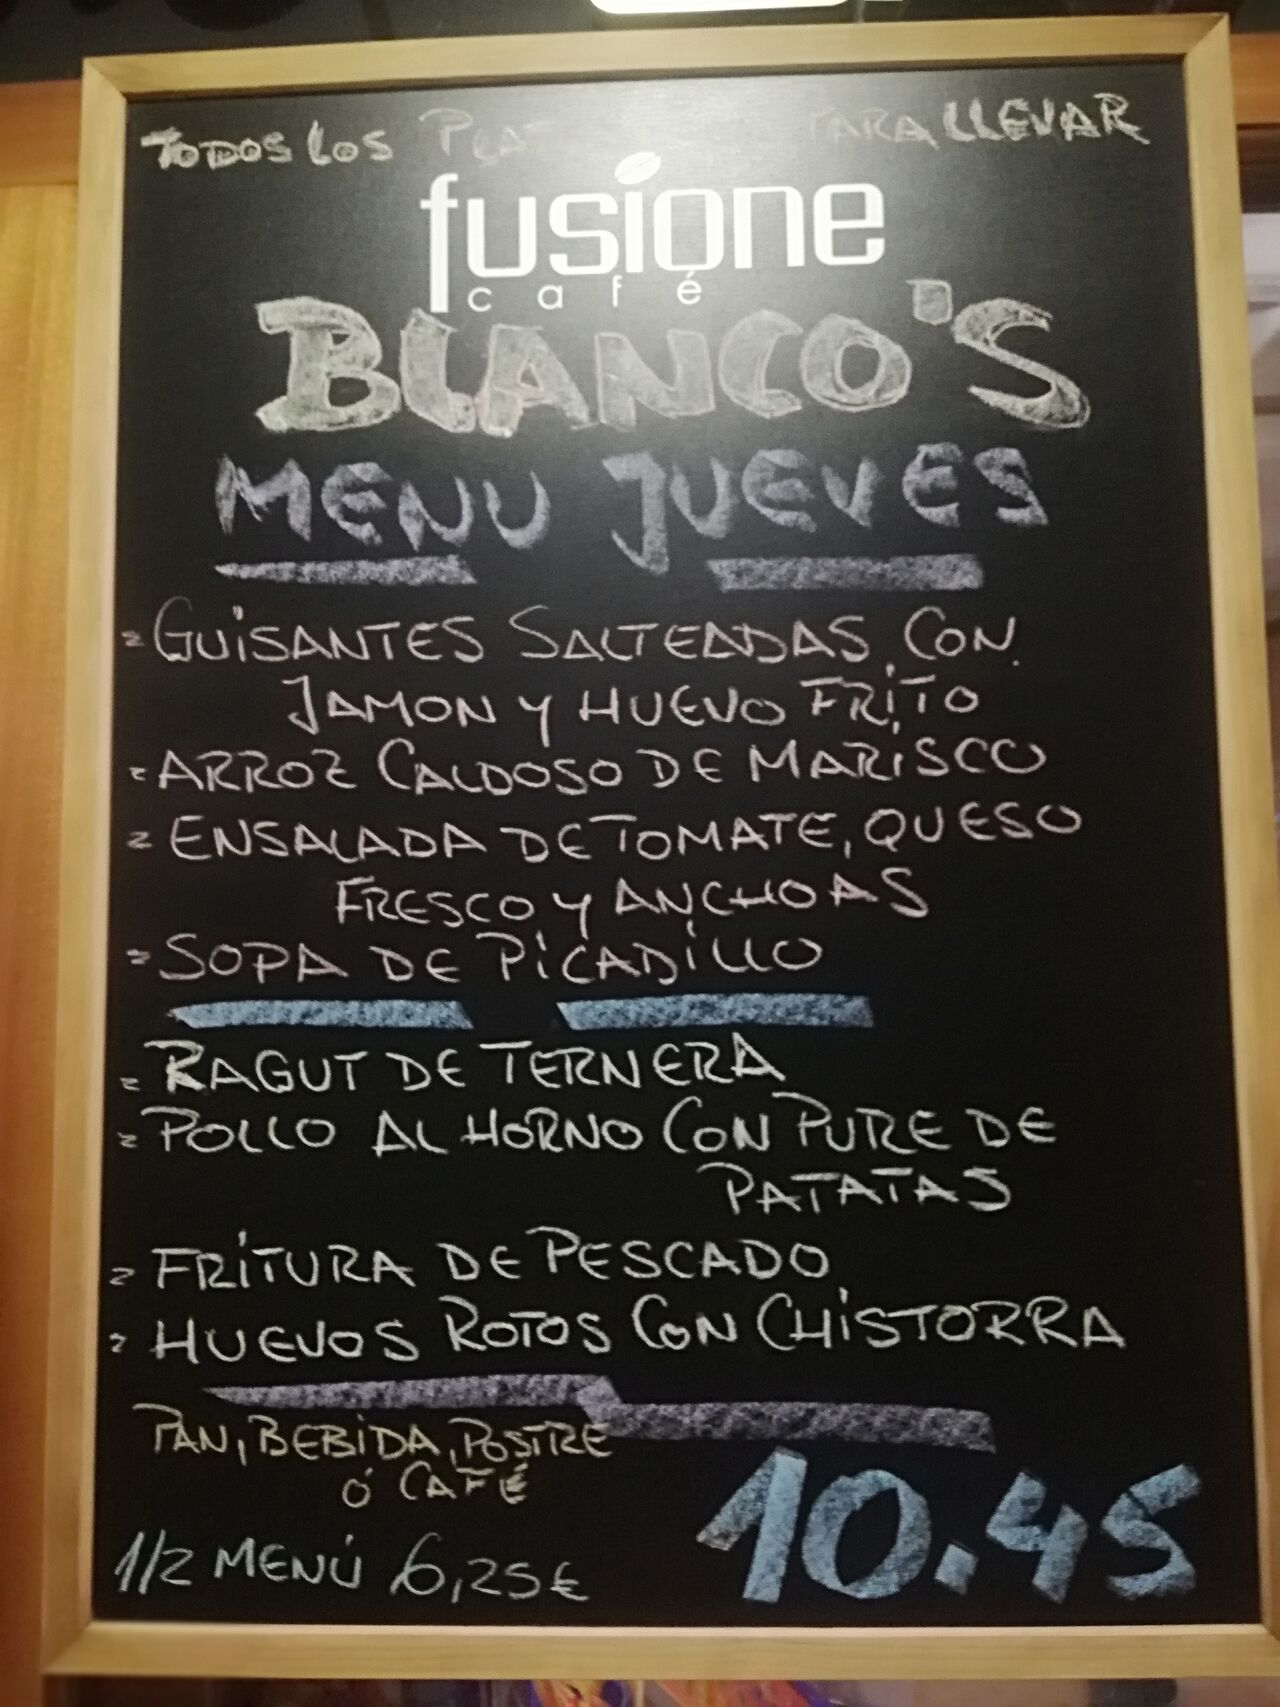 TODOS LOS PARA LLEVAR
fusione
café
BLANCO'S
MENU JUEVES
= GUISANTES SALTEADAS CON
JAMON Y HUEVO FRITO
= ARROZ CALDOSO DE MARISCO
= ENSALADA DE TOMATE, QUESO
FRESCO Y ANCHOAS
= SOPA DE PICADILLO
= RAGUT DE TERNERA
= POLLO AL HORNO CON PURE DE
PATATAS
= FRITURA DE PESCADO
= HUEVOS ROTOS CON CHISTORRA
PAN, BEBIDA, POSTRE
Ó CAFÉ
10.45
1/2 MENÚ 6,25€